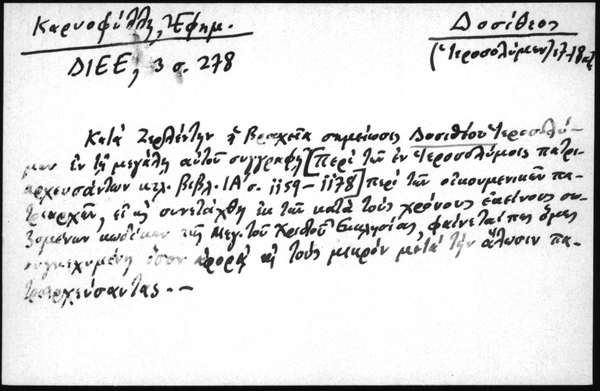 Καρυοφύλλη, Ἐφημ.
ΔΙΕΕ, 3 σ. 278
Δοσίθεος
(Ἱεροσολύμων) 17-18 αἰ.
Κατὰ Ζερλέντην ἡ βραχεῖα σημείωσις Δοσιθέου Ἱεροσολύ-
μων ἐν τῇ μεγάλῃ αὐτοῦ συγγραφῇ [περὶ τῶν ἐν Ἱεροσολύμοις πατρι-
αρχευσάντων κτλ. βιβλ. ΙΑ' σ. 1159-1178] περὶ τῶν οἰκουμενικῶν πα-
τριαρχῶν, εἰ καὶ συνετάχθη ἐκ τῶν κατὰ τοὺς χρόνους ἐκείνους σω-
ζομένων κωδίκων τῆς Μεγ. τοῦ Χριστοῦ Ἐκκλησίας, φαίνεταί πως ὅμως
συγκεχυμένη ὅσον ἀφορᾷ εἰς τοὺς μικρὸν μετὰ τὴν ἅλωσιν πα-
τριαρχεύσαντας. -